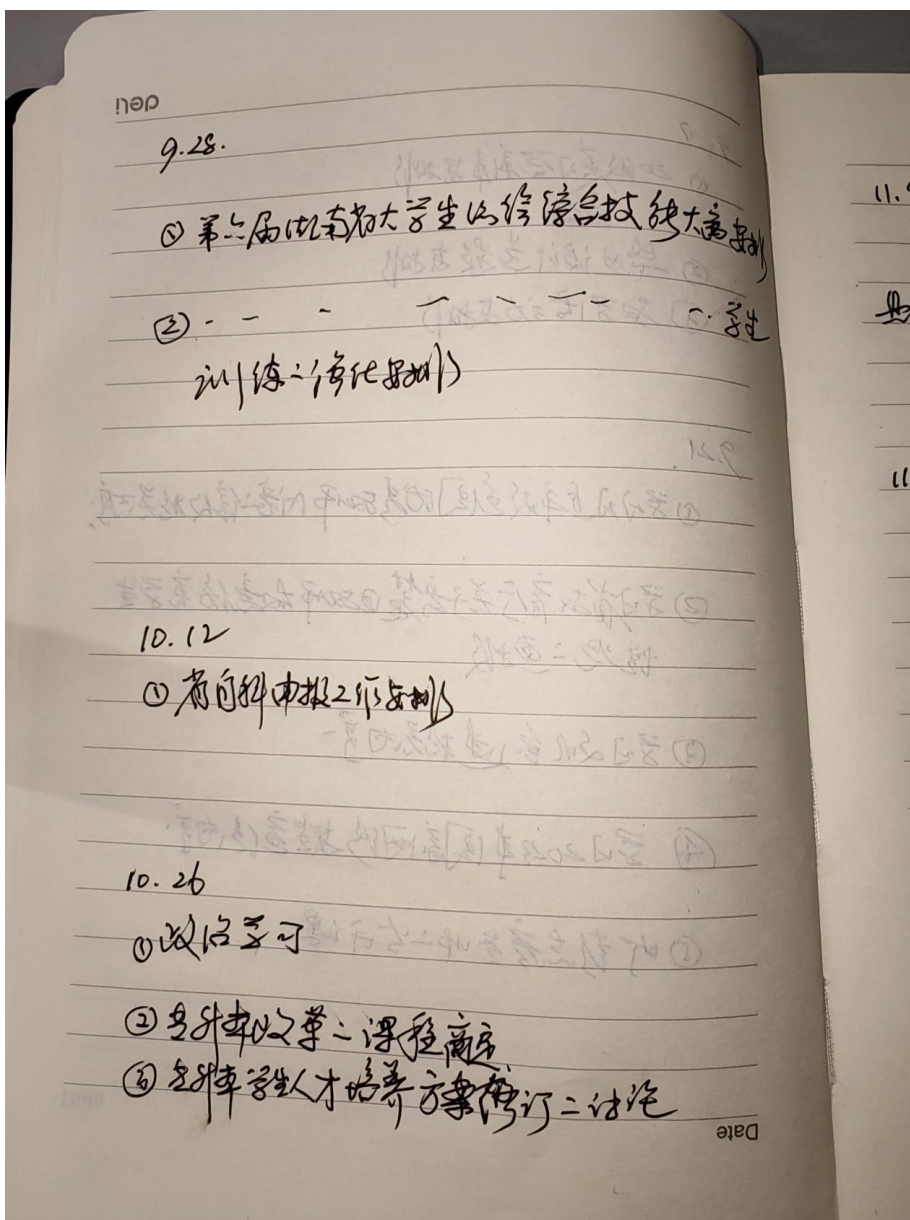 deli
9.28.
① 第六届湖南省大学生测绘综合技能大赛安排
② - - - — - — - - 学生
训练二强化安排
10.12
① 省自科申报工作安排
10.26
① 政治学习
② 专升本改革二课程商定
③ 专升本学生人才培养方案修订二讨论
Date
11.
11